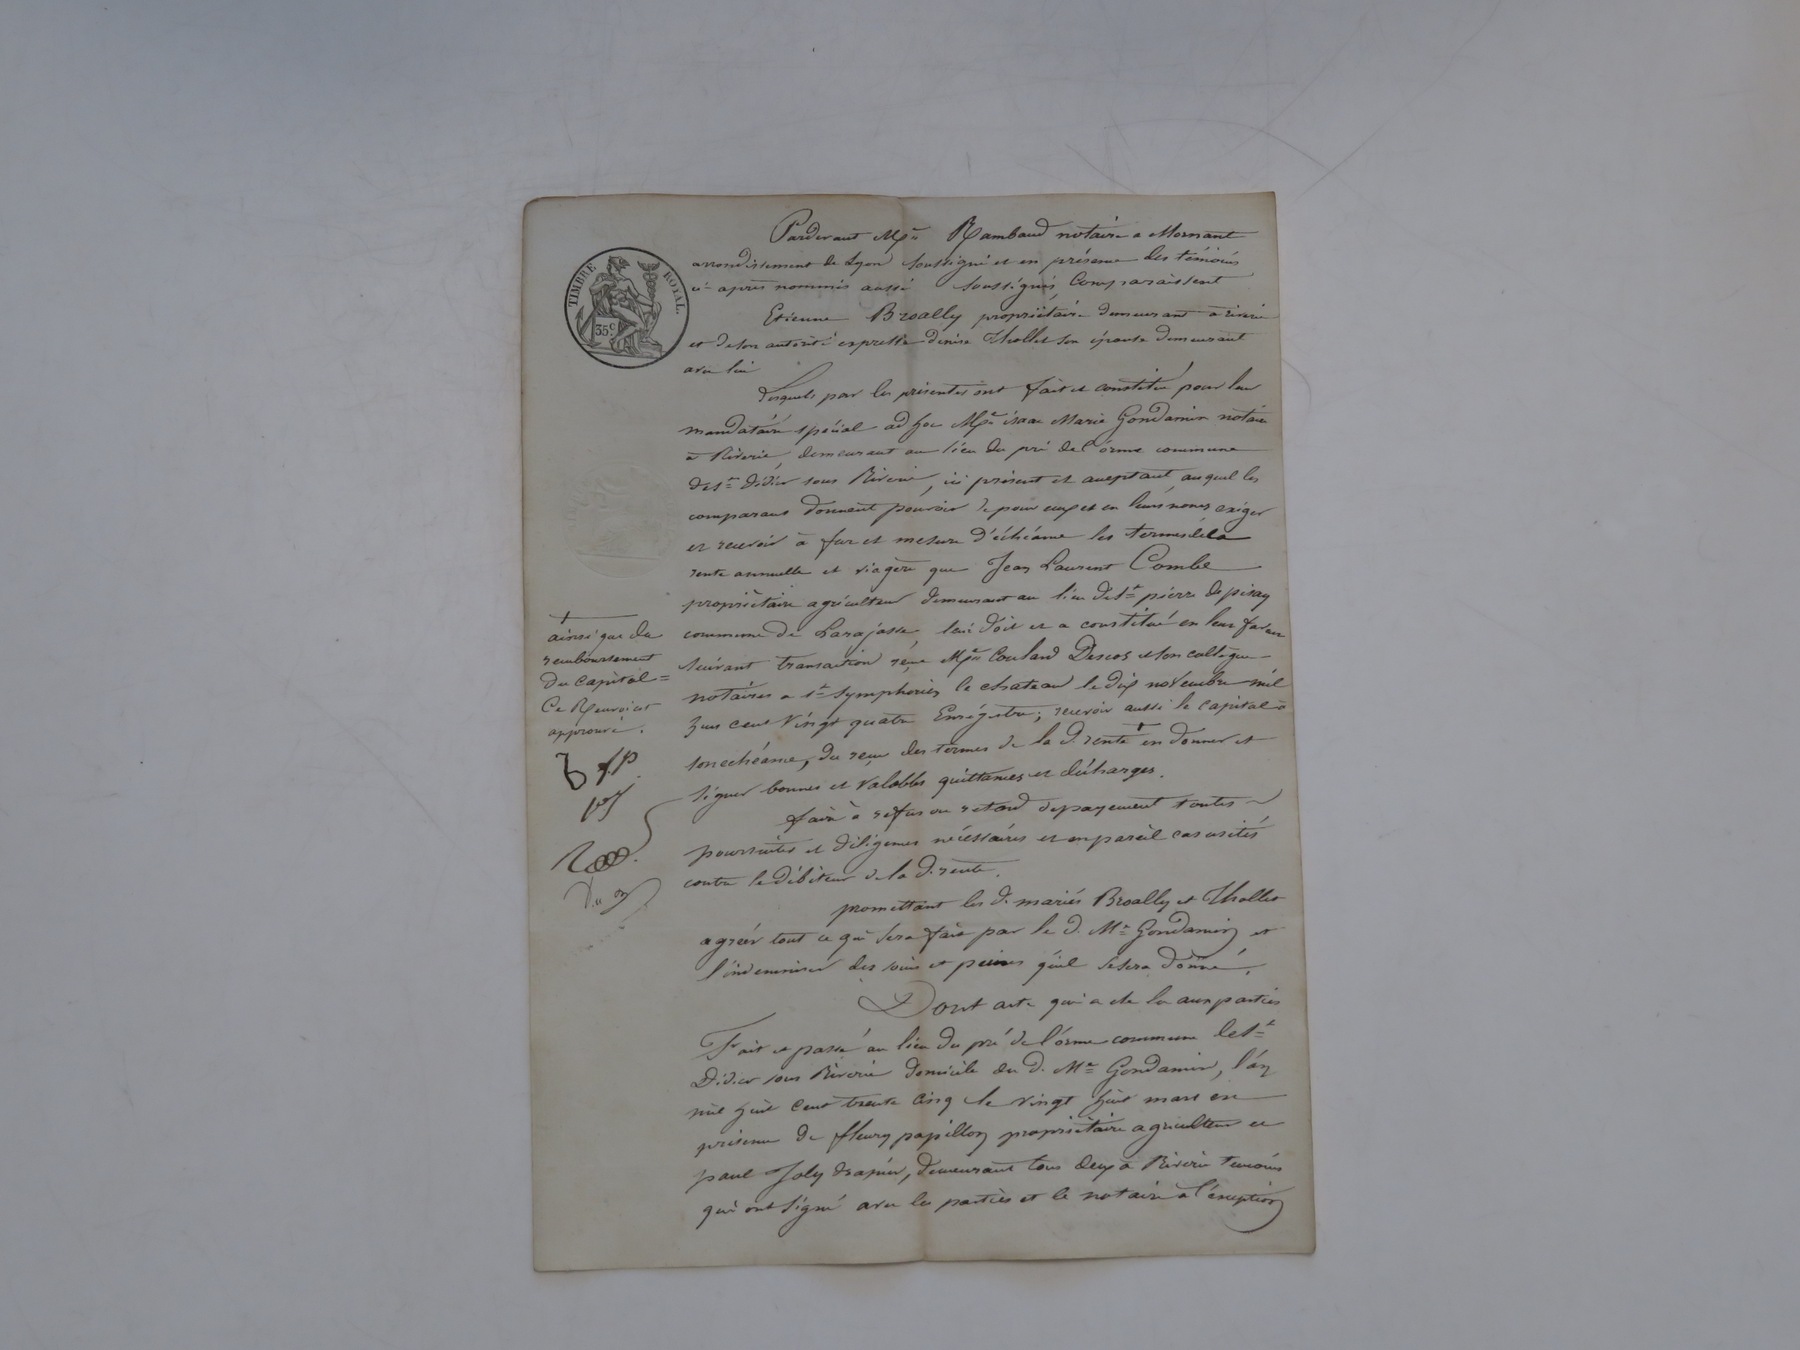 TIMBRE ROYAL.
35c
Pardevant Me Rambaud notaire a Mornant
arrondissement de Lyon soussigné et en présence des témoins
ci-après nommés aussi soussignés Comparaissent
Etienne Broally propriétaire demeurant à riverie
et de son autorité expresse denise Thollet son épouse demeurant
avec lui
Lesquels par les présentes ont fait et constitué pour leur
mandataire spécial ad hoc Me isaac Marie Gondamin notaire
a Riverie, demeurant au lieu du pré de l'orme commune
de st didier sous Riverie, ici présent et acceptant, auquel les
comparans donnent pouvoir de pour eux et en leurs noms exiger
et recevoir à fur et mesure d'échéance les termes de la
rente annuelle et viagère que Jean Laurent Combe
propriétaire agriculteur demeurant au lieu de st pierre
commune de Larajasse, leur doit et a constitué en leur faveur
suivant transaction reçue Me Coulard Descos et son collègue
notaires a st Symphorien le chateau le dix novembre mil
huit cent vingt quatre Enregistrée; recevoir aussi le capital à
son échéance, du reçu des termes de la d. rente + en donner et
signer bonnes et valables quittances et décharges.
ainsi que du
remboursement
du capital =
Ce Renvoi est
approuvé.
faire à refus ou retard de payement toutes
poursuites et diligences nécessaires et en pareil cas usités
contre le débiteur de la d. rente.
promettant les d. mariés Broally et Thollet
agréer tout ce qui sera fait par le d. Me Gondamin et
l'indemniser des soins et peines qu'il se sera donné.
Dont acte qui a été lu aux parties
Fait et passé au lieu du pré de l'orme commune de st
Didier sous Riverie domicile du d. Me Gondamin, l'an
mil huit cent trente cinq le vingt huit mars en
présence de fleury papillon propriétaire agriculteur et
paul Joly drapier, demeurant tous deux à Riverie témoins
qui ont signé avec les parties et le notaire à l'exception